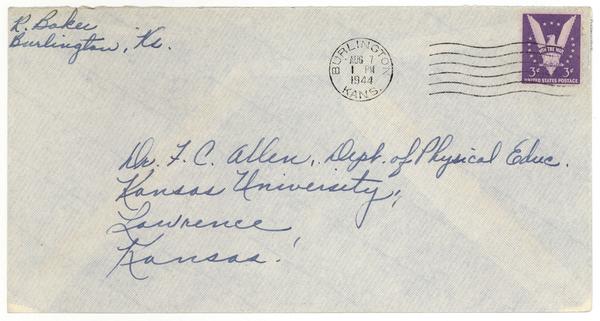 R. Baker
Burlington, Ks.
BURLINGTON
AUG 7
1 PM
1944
KANS.
WIN THE WAR
3¢ 3¢
UNITED STATES POSTAGE
Dr. F. C. Allen, Dept. of Physical Educ.
Kansas University,
Lawrence
Kansas.